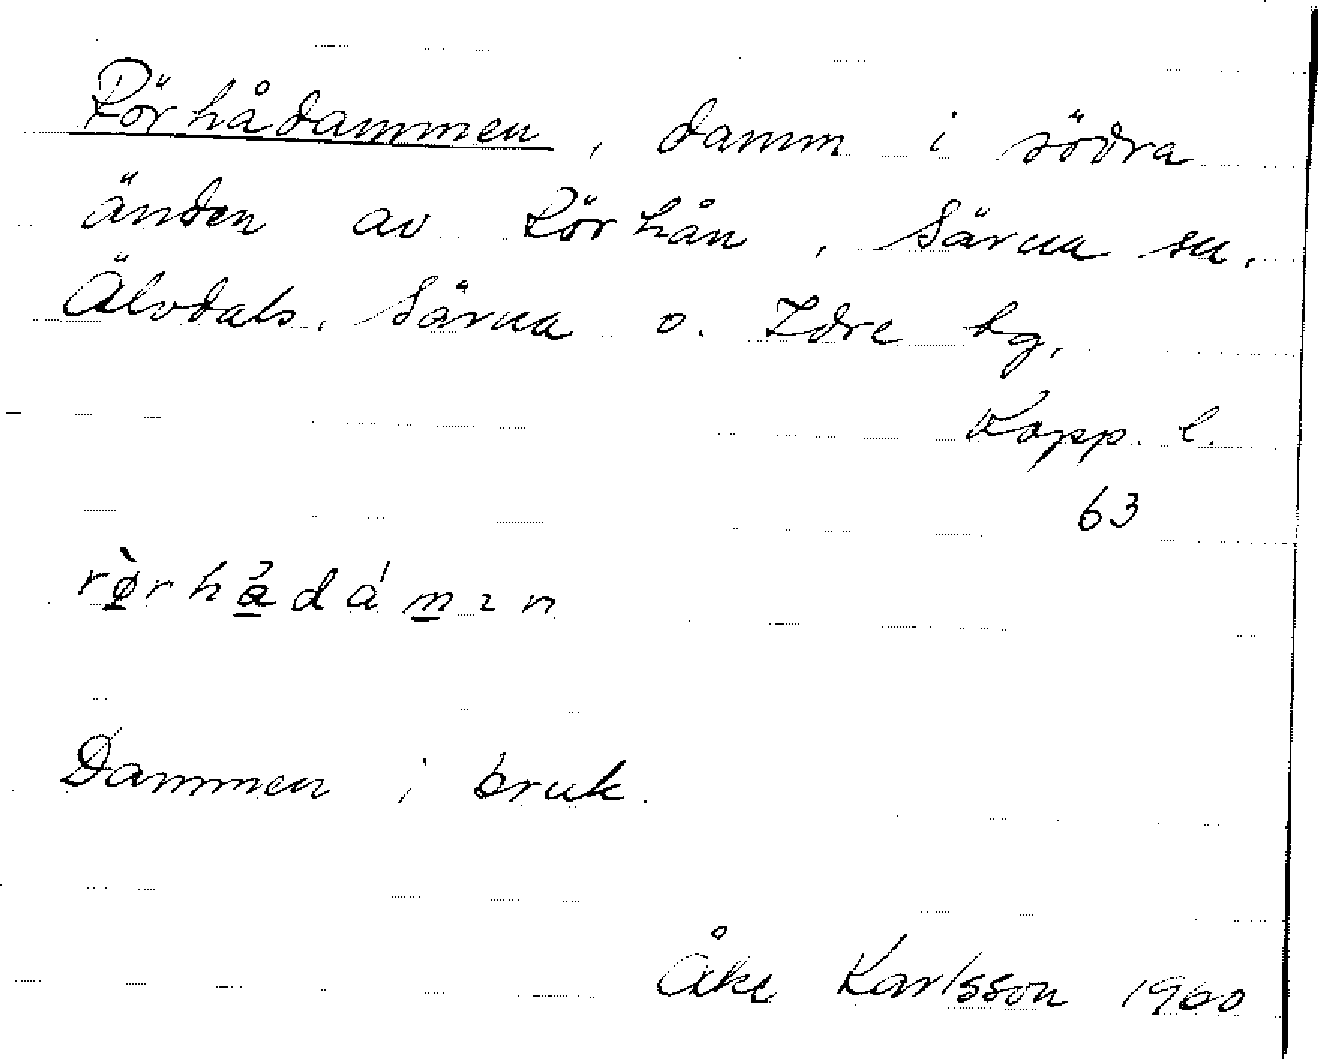 Rörhådammen, damm i södra
änden av Rörhån, Särna sn,
Älvdals, Särna o. Idre tg,
Kopp. l.
63
Dammen i bruk.
Åke Karlsson 1960